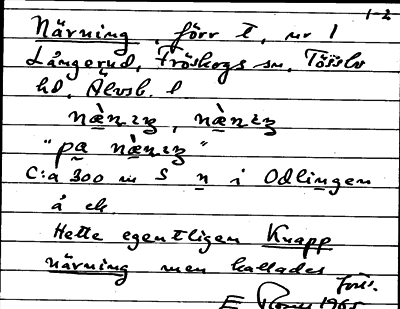 1-2
Närning, förr t, nr 1
Långerud, Fröskogs sn, Tössbo
hd, Älvsb. l
"på
C:a 300 m S n i Odlingen
å ek.
Hette egentligen Knapp
närning men kallades
förr.
E 1965